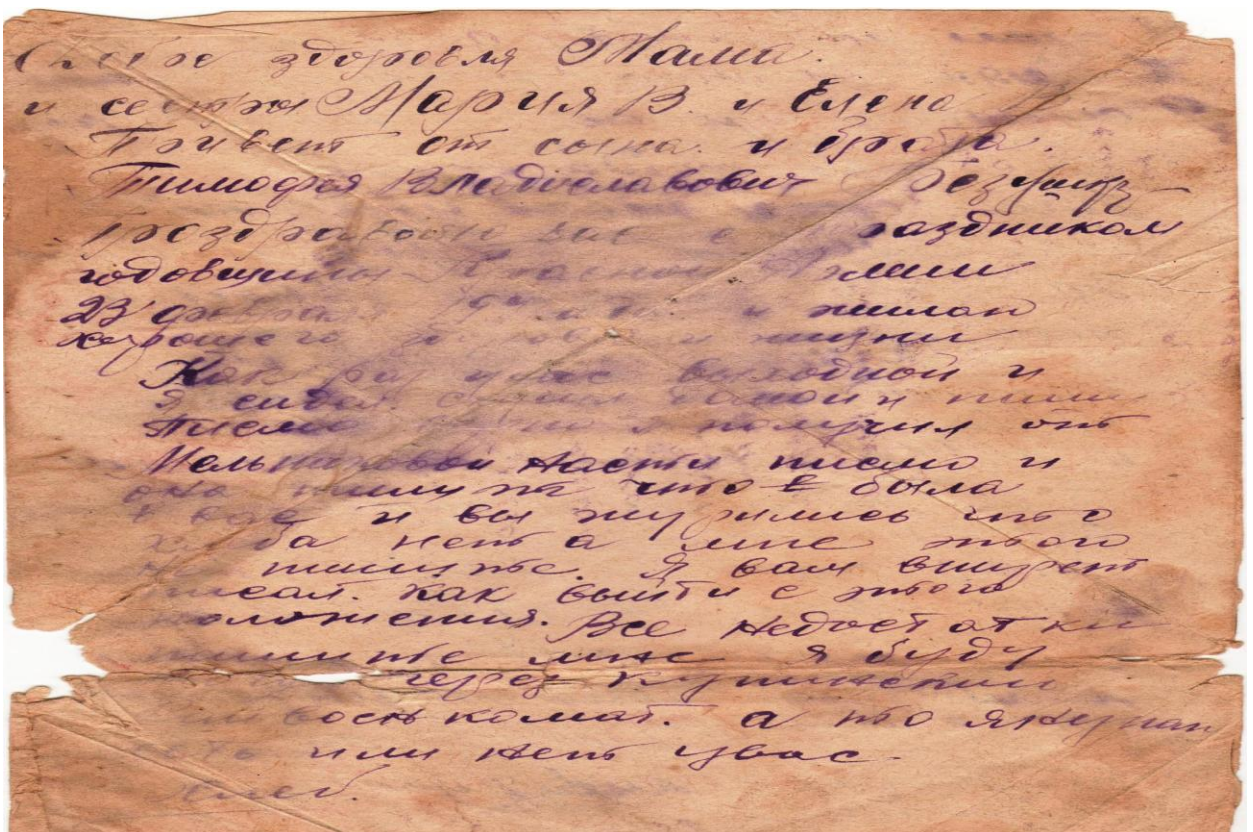 здоровля Мама.
и сестры Мария В. и Елена
Привет от сына. и брата.
Тимофея Владиславович
Поздравляю вас с праздником
годовщины Красной Армии
23 февраля и желаю
хорошего здоровья жизни
Как раз у нас выходной и
я сижу дома и пишу
письмо я получил от
Мельниковой Насти письмо и
она пишет что была
у вас и вы журились что
хлеба нет а мне этого
не пишите. Я вам вперет
писал. как выйти с этого
положения. Все недостатки
пишите мне я буду
через Купинский
восн комат. а то я не знаю
есть или нет у вас.
хлеб.